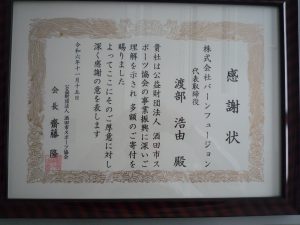 感謝状
株式会社バーンフュージョン
代表取締役
渡部 浩由 殿
貴社は公益財団法人 酒田市ス
ポーツ協会の事業振興に深いご
理解を示され 多額のご寄付を
賜りました
よってここにそのご厚意に対し
深く感謝の意を表します
令和六年十一月十五日
公益財団法人 酒田市スポーツ協会
会長 齋藤 隆